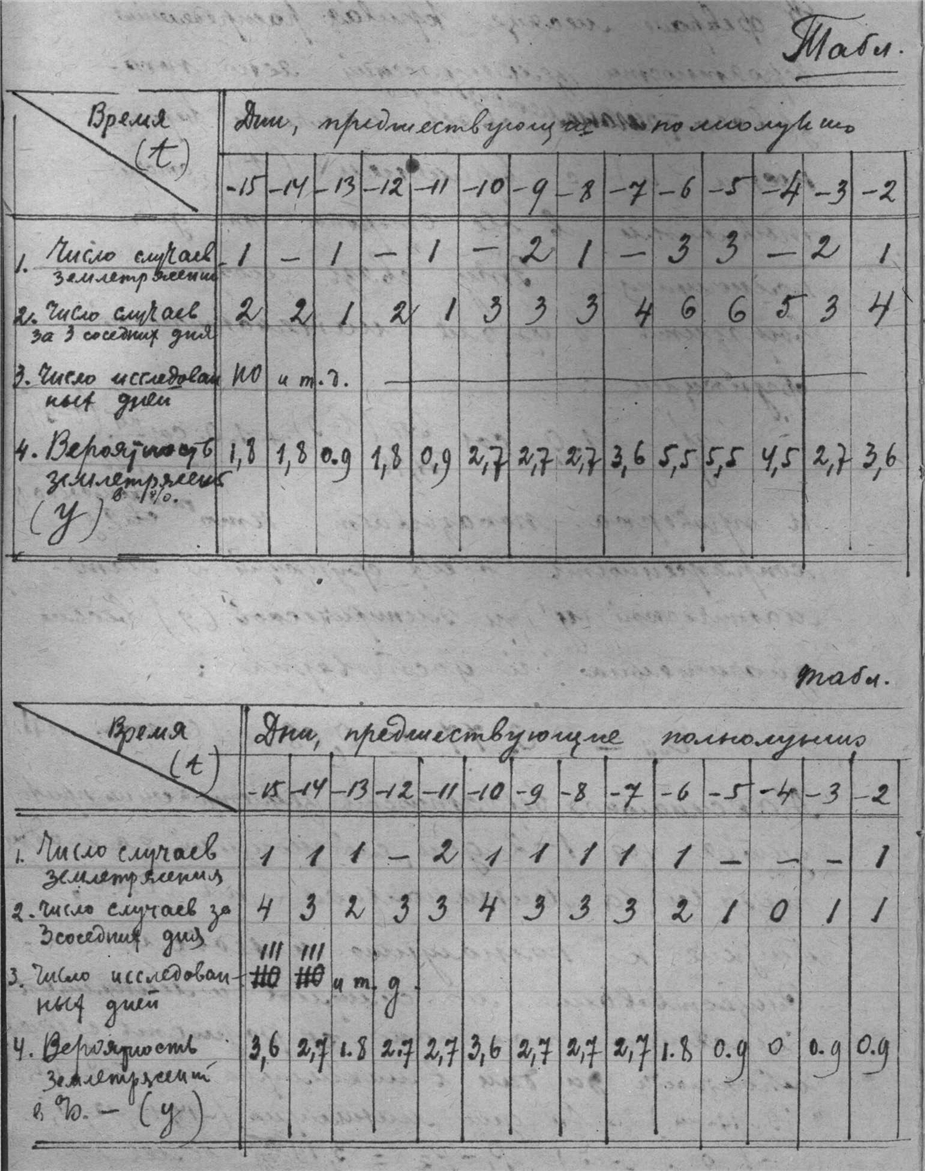 Табл.
Время (t) Дни, предшествующие полнолунию
-15 -14 -13 -12 -11 -10 -9 -8 -7 -6 -5 -4 -3 -2
1. Число случаев 1 – 1 – 1 – 2 1 – 3 3 – 2 1
землетрясений
2. Число случаев 2 2 1 2 1 3 3 3 4 6 6 5 3 4
за 3 соседних дня
3. Число исследован 110 и т.д.
ных дней
4. Вероятность 1,8 1,8 0.9 1,8 0,9 2,7 2,7 2,7 3,6 5,5 5,5 4,5 2,7 3,6
землетрясений
в %.
(y)
табл.
Время (t) Дни, предшествующие полнолунию
-15 -14 -13 -12 -11 -10 -9 -8 -7 -6 -5 -4 -3 -2
1. Число случаев 1 1 1 – 2 1 1 1 1 1 – – – 1
землетрясения
2. Число случаев за 4 3 2 3 3 4 3 3 3 2 1 0 1 1
3 соседних дня
111 111
3. Число исследован- 110 110 и т.д.
ных дней
4. Вероятность 3,6 2,7 1.8 2.7 2,7 3,6 2,7 2,7 2,7 1.8 0.9 0 0.9 0.9
землетрясений
в %. – (y)